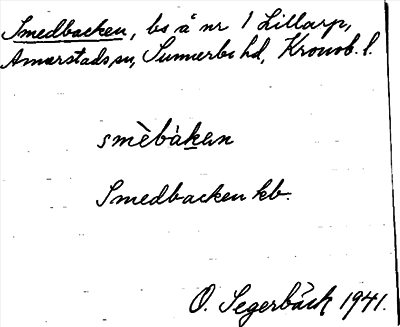 Smedbacken, bs å nr 1 Lillarp,
Annerstads sn, Sunnerbo hd, Kronob. l.
smèbàkan
Smedbacken kb.
O. Segerbäck 1941.